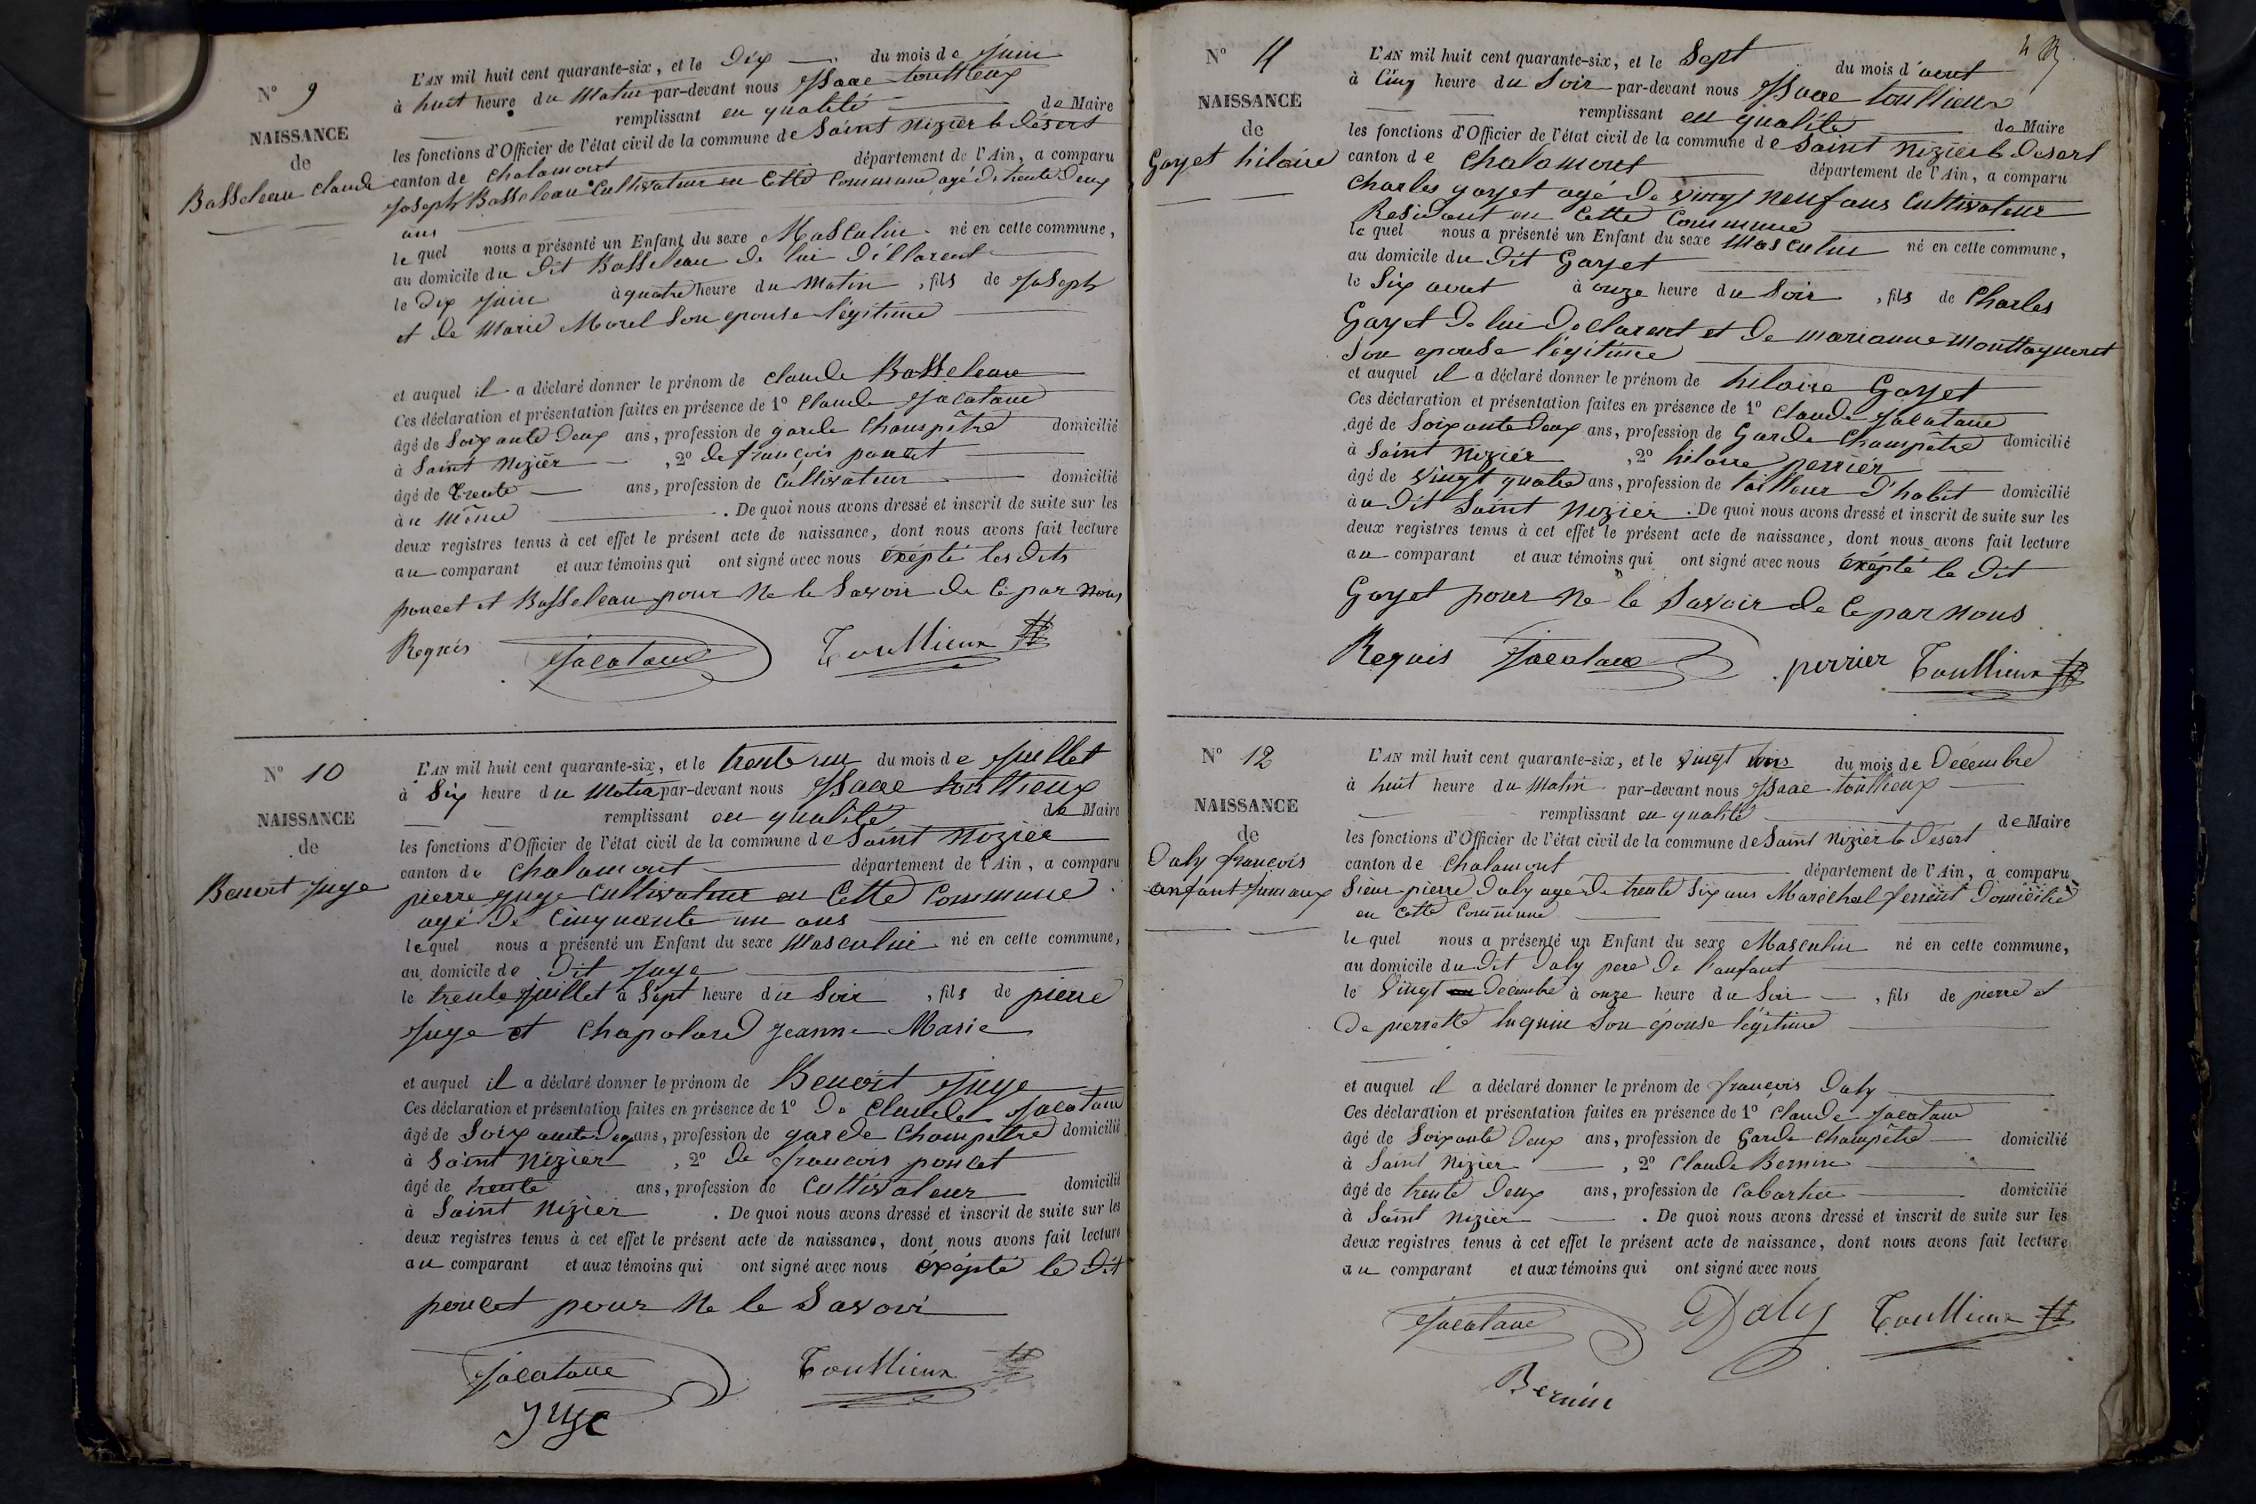 N° 9
NAISSANCE
de
Basseleau Claude
L'AN mil huit cent quarante-six, et le Dix du mois de Juin
à huit heure du Matin par-devant nous Isaac toullieux
remplissant en qualité de Maire
les fonctions d'Officier de l'état civil de la commune de Saint Nizier le Désert
canton de Chalamont département de l'Ain, a comparu
Joseph Basseleau Cultivateur en Cette Commune agé de trente Deux
ans
le quel nous a présenté un Enfant du sexe Masculin né en cette commune,
au domicile du Dit Basseleau De lui Déllarent
le Dix Juin à quatre heure du Matin, fils de Joseph
et de Marie Morel Son epouse légitime
et auquel il a déclaré donner le prénom de Claude Basseleau
Ces déclaration et présentation faites en présence de 1° Claude Jacatane
âgé de Soixante Deux ans, profession de garde Champêtre domicilié
à Saint Nizier, 2° de françois poncet
âgé de trente ans, profession de Cultivateur domicilié
à u même. De quoi nous avons dressé et inscrit de suite sur les
deux registres tenus à cet effet le présent acte de naissance, dont nous avons fait lecture
au comparant et aux témoins qui ont signé avec nous éxépté les Dits
poncet et Basseleau pour Ne le Savoir de Ce par Nous
Requis Jacatane Toullieux
N° 10
NAISSANCE
de
Benoit Juge
L'AN mil huit cent quarante-six, et le trente un du mois de Juillet
à Six heure du Matin par-devant nous Isaac toullieux
remplissant en qualité de Maire
les fonctions d'Officier de l'état civil de la commune de Saint Nizier
canton de Chalamont département de l'Ain, a comparu
pierre Juge Cultivateur en Cette Commune
agé De Cinquante un ans
lequel nous a présenté un Enfant du sexe Masculin né en cette commune,
au domicile de Dit Juge
le trente Juillet à Sept heure du Soir, fils de pierre
Juge et Chapolard Jeanne Marie
et auquel il a déclaré donner le prénom de Benoit Juge
Ces déclaration et présentation faites en présence de 1° De Claude Jacatane
âgé de Soixante Deux ans, profession de garde Champêtre domicilié
à Saint Nizier, 2° de françois poncet
âgé de trente ans, profession de Cultivateur domicilié
à Saint Nizier. De quoi nous avons dressé et inscrit de suite sur les
deux registres tenus à cet effet le présent acte de naissance, dont nous avons fait lecture
au comparant et aux témoins qui ont signé avec nous éxépté le Dit
poncet pour Ne le Savoir
Jacatane Toullieux
Juge
N° 11
NAISSANCE
de
Gayet hilaire
L'AN mil huit cent quarante-six, et le Sept du mois d'aout
à Cinq heure du Soir par-devant nous Isaac toullieux
remplissant en qualité de Maire
les fonctions d'Officier de l'état civil de la commune de Saint Nizier le Desert
canton de Chalamont département de l'Ain, a comparu
Charles gayet agé De Vingt Neuf ans Cultivateur
Residant en Cette Commune
le quel nous a présenté un Enfant du sexe Masculin né en cette commune,
au domicile du Dit Gayet
le Six aout à onze heure du Soir, fils de Charles
Gayet De lui Declarent et De marianne Monttagneret
Son epouse légitime
et auquel il a déclaré donner le prénom de hilaire Gayet
Ces déclaration et présentation faites en présence de 1° Claude Jacatane
âgé de Soixante Deux ans, profession de Garde Champêtre domicilié
à Saint Nizier, 2° hilaire perrier
âgé de Vingt quatre ans, profession de tailleur D'habit domicilié
à u Dit Saint Nizier. De quoi nous avons dressé et inscrit de suite sur les
deux registres tenus à cet effet le présent acte de naissance, dont nous avons fait lecture
au comparant et aux témoins qui ont signé avec nous éxépté le Dit
Gayet pour Ne le Savoir de Ce par Nous
Requis Jacatane perrier Toullieux
N° 12
NAISSANCE
de
Daly francois
enfant Jumaux
L'AN mil huit cent quarante-six, et le Vingt trois du mois de Décembre
à huit heure du Matin par-devant nous Isaac toullieux
remplissant en qualité de Maire
les fonctions d'Officier de l'état civil de la commune de Saint Nizier le Desert
canton de Chalamont département de l'Ain, a comparu
Sieur pierre Daly agé De trente Six ans Maréchal ferrent Domicilié
en Cette Commune
le quel nous a présenté un Enfant du sexe Masculin né en cette commune,
au domicile du Dit Daly pere De l'anfant
le Vingt Décembre à onze heure du Soir, fils de pierre et
De pierrette luquin Son épouse légitime
et auquel il a déclaré donner le prénom de francois Daly
Ces déclaration et présentation faites en présence de 1° Claude Jacatane
âgé de Soixante Deux ans, profession de Garde Champêtre domicilié
à Saint Nizier, 2° Claude Bernin
âgé de trente Deux ans, profession de Cabartier domicilié
à Saint Nizier. De quoi nous avons dressé et inscrit de suite sur les
deux registres tenus à cet effet le présent acte de naissance, dont nous avons fait lecture
au comparant et aux témoins qui ont signé avec nous
Jacatane Daly Toullieux
Bernin